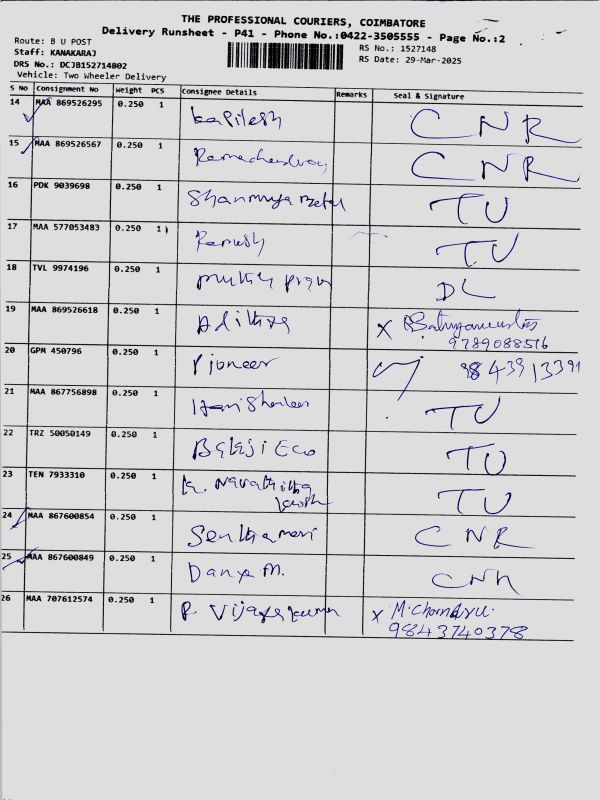 THE PROFESSIONAL COURIERS, COIMBATORE
Delivery Runsheet - P41 - Phone No.:0422-3505555 - Page No.:2
Route: B U POST
Staff: KANAKARAJ
DRS No.: DCJB152714802
Vehicle: Two Wheeler Delivery
RS No.: 1527148
RS Date: 29-Mar-2025
S No Consignment No Weight PCS Consignee Details Remarks Seal & Signature
14 MAA 869526295 0.250 1 Kapilesh CNR
15 MAA 869526567 0.250 1 CNR
16 PDK 9039698 0.250 1 TU
17 MAA 577053483 0.250 1 Ramesh TU
18 TVL 9974196 0.250 1 DL
19 MAA 869526618 0.250 1 Adithya X
9789088516
20 GPM 450796 0.250 1 Pioneer 9843913391
21 MAA 867756898 0.250 1 TU
22 TRZ 50050149 0.250 1 Balaji Eco TU
23 TEN 7933310 0.250 1 K. TU
24 MAA 867600854 0.250 1 CNR
25 MAA 867600849 0.250 1 Danya M. CNR
26 MAA 707612574 0.250 1 P. Vijayakumar X M.
9843740378